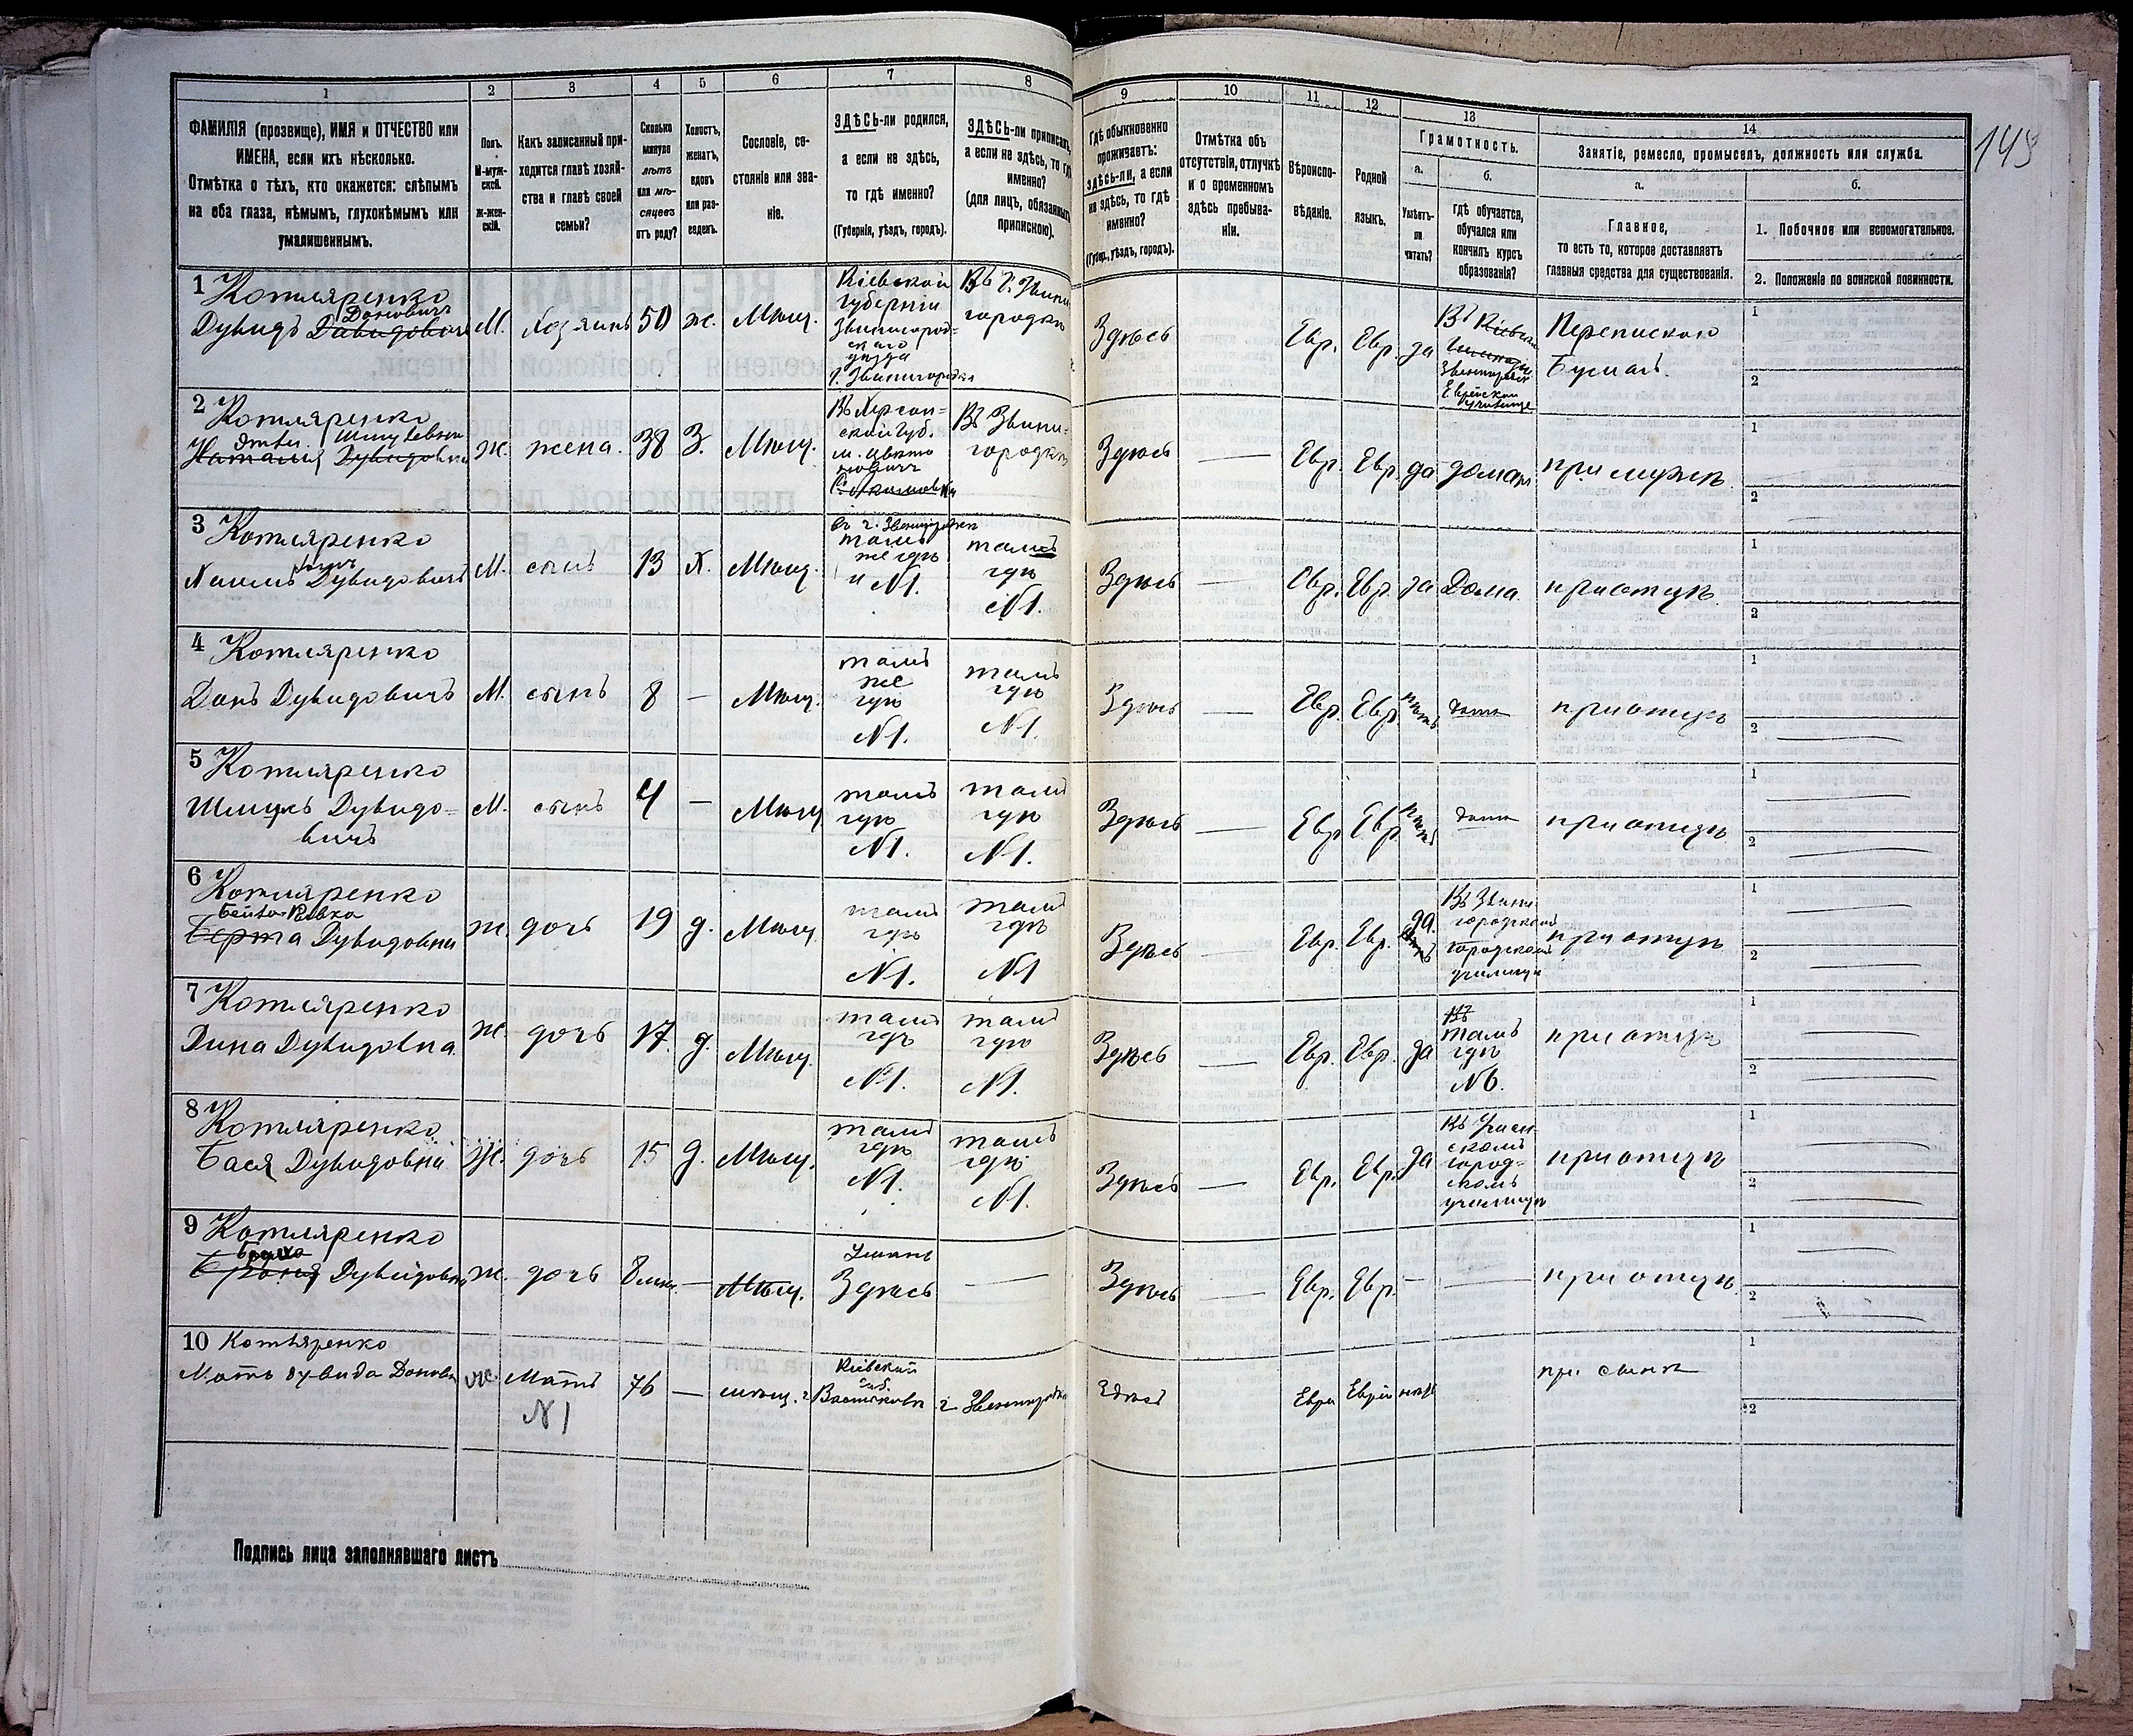 1
2
3
4
5
6
7
8
ФАМИЛІЯ (прозвище), ИМЯ и ОТЧЕСТВО или
ИМЕНА, если ихъ нѣсколько.
Отмѣтка о тѣхъ, кто окажется: слѣпымъ
на оба глаза, нѣмымъ, глухонѣмымъ или
умалишеннымъ.
Полъ.
М-муж-
ской.
Ж-жен-
скій.
Какъ записанный при-
ходится главѣ хозяй-
ства и главѣ своей
семьи?
Сколько
минуло
лѣтъ
или мѣ-
сяцевъ
отъ роду?
Холостъ,
женатъ,
вдовъ
или раз-
веденъ.
Сословіе, со-
стояніе или зва-
ніе.
ЗДѢСЬ-ли родился,
а если не здѣсь,
то гдѣ именно?
(Губернія, уѣздъ, городъ).
ЗДѢСЬ-ли приписанъ,
а если не здѣсь, то гдѣ
именно?
(для лицъ, обязанныхъ
припискою).
9
10
11
12
13
14
Гдѣ обыкновенно
проживаетъ:
здѣсь-ли, а если
не здѣсь, то гдѣ
именно?
(Губер., уѣздъ, городъ).
Отмѣтка объ
отсутствіи, отлучкѣ
и о временномъ
здѣсь пребыва-
ніи.
Вѣроиспо-
вѣданіе.
Родной
языкъ.
Грамотность.
а.
Умѣетъ-
ли
читать?
б.
Гдѣ обучается,
обучался или
кончилъ курсъ
образованія?
Занятіе, ремесло, промыселъ, должность или служба.
а.
Главное,
то есть то, которое доставляетъ
главныя средства для существованія.
б.
1. Побочное или вспомогательное.
2. Положеніе по воинской повинности.
1 Котляренко
Доновичъ
Дувидъ Давидовичъ
М.
Хозяинъ
50
ж.
Мѣщ.
Кіевской
губерніи
Звенигород-
скаго
уѣзда
г. Звенигородка
Въ г. Звени-
городкѣ
Здѣсь
Евр.
Евр.
да
Еврейское
Перепискою
бумагъ.
1
2
2 Котляренко
Наталія Дувидовна
ж.
жена.
38
З.
Мѣщ.
Въ Херсон-
ской губ.
Въ Звени-
городкѣ
Здѣсь
Евр.
Евр.
да
дома
при мужѣ
1
2
3 Котляренко
Дувидовичъ
М.
сынъ
13
Х.
Мѣщ.
тамъ
же гдѣ
и №1.
тамъ
гдѣ
№1.
Здѣсь
Евр.
Евр.
да
Дома.
при отцѣ.
1
2
4 Котляренко
Донъ Дувидовичъ
М.
сынъ
8
Мѣщ.
тамъ
же
гдѣ
№1.
тамъ
гдѣ
№1.
Здѣсь
Евр.
Евр.
нѣтъ
при отцѣ
1
2
5 Котляренко
Шмуль Дувидо-
вичъ
М.
сынъ
4
Мѣщ.
тамъ
гдѣ
№1.
тамъ
гдѣ
№1.
Здѣсь
Евр.
Евр.
нѣтъ
при отцѣ.
1
2
6 Котляренко
Бейла-Ривка
Берта Дувидовна
ж.
дочь
19
д.
Мѣщ.
тамъ
гдѣ
№1.
тамъ
гдѣ
№1
Здѣсь
Евр.
Евр.
да.
Въ Звени-
городском
городскомъ
училищѣ
при отцѣ
1
2
7 Котляренко
Дина Дувидовна.
ж.
дочь
17.
д.
Мѣщ.
тамъ
гдѣ
№1.
тамъ
гдѣ
№1.
Здѣсь
Евр.
Евр.
да
тамъ
гдѣ
№6.
при отцѣ
1
2
8 Котляренко
Бася Дувидовна
Ж.
дочь
15
д.
Мѣщ.
тамъ
гдѣ
№1.
тамъ
гдѣ
№1.
Здѣсь
Евр.
Евр.
да
Въ Уман-
скомъ
город-
скомъ
училищѣ
при отцѣ
1
2
9 Котляренко
Броня Дувидовна
ж.
дочь
8 мѣс.
Мѣщ.
Умань
Здѣсь
Здѣсь
Евр.
Евр.
при отцѣ.
1
2
10 Котляренко
Мать Дувида Донова
ж.
Мать
№1
76
мѣщ.
Кіевской
губ.
г. Васильковъ
г. Звенигородка
Здѣсь
Евре
Еврей
нѣтъ
при сынѣ
1
2
Подпись лица заполнявшаго листъ